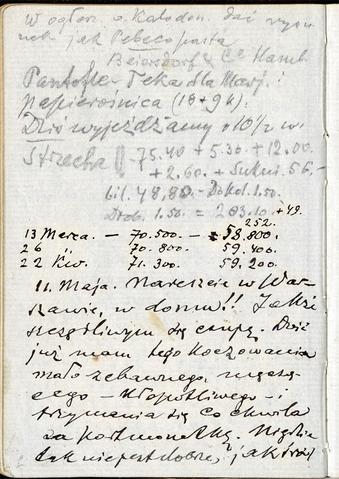 W ogłosz. o Kalodon. dać
nek jak Pebeco pasta
Beiersdorf & Co Hamb.
Pantofle – Teka dla Marj.:
Papierośnica (18+9 k):
Dziś wyjeżdżamy o 10½ w.
Strzecha 75.40 + 5.30 + 12.00
+ 2.60. + Sukni. 56. –
bil. 48,80 – Dokoł. 1.50.
Drob. 1.50. = 203.10. + 49.
252.
13 Marca. – 70.500. – 58.800.
26 70.800 59.400.
22 Kw. 71.300 59.200
11. Maja. Nareszcie w War-
szawie, w domu!! Jakże
szczęśliwym się czuję. Dość
już mam tego koczowania
mało zabawnego, męczą-
cego – kłopotliwego – i
trzymania się co chwila
za portmonetkę. Nigdzie
tak nie jest dobrze, jak